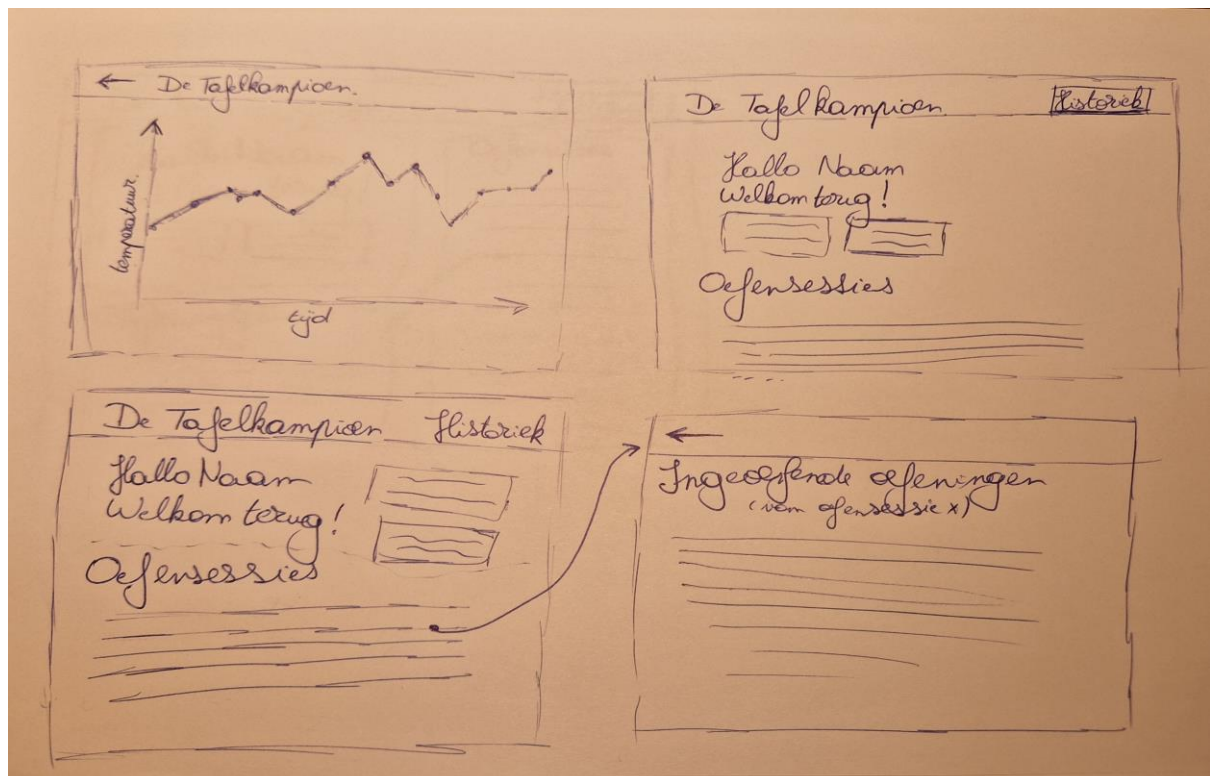 ← De Tafelkampioen.
temperatuur.
tijd
De Tafelkampioen
Historiek
Hallo Naam
Welkom terug!
Oefensessies
De Tafelkampioen
Historiek
Hallo Naam
Welkom terug!
Oefensessies
←
Ingeoefende oefeningen
(van oefensessie x)